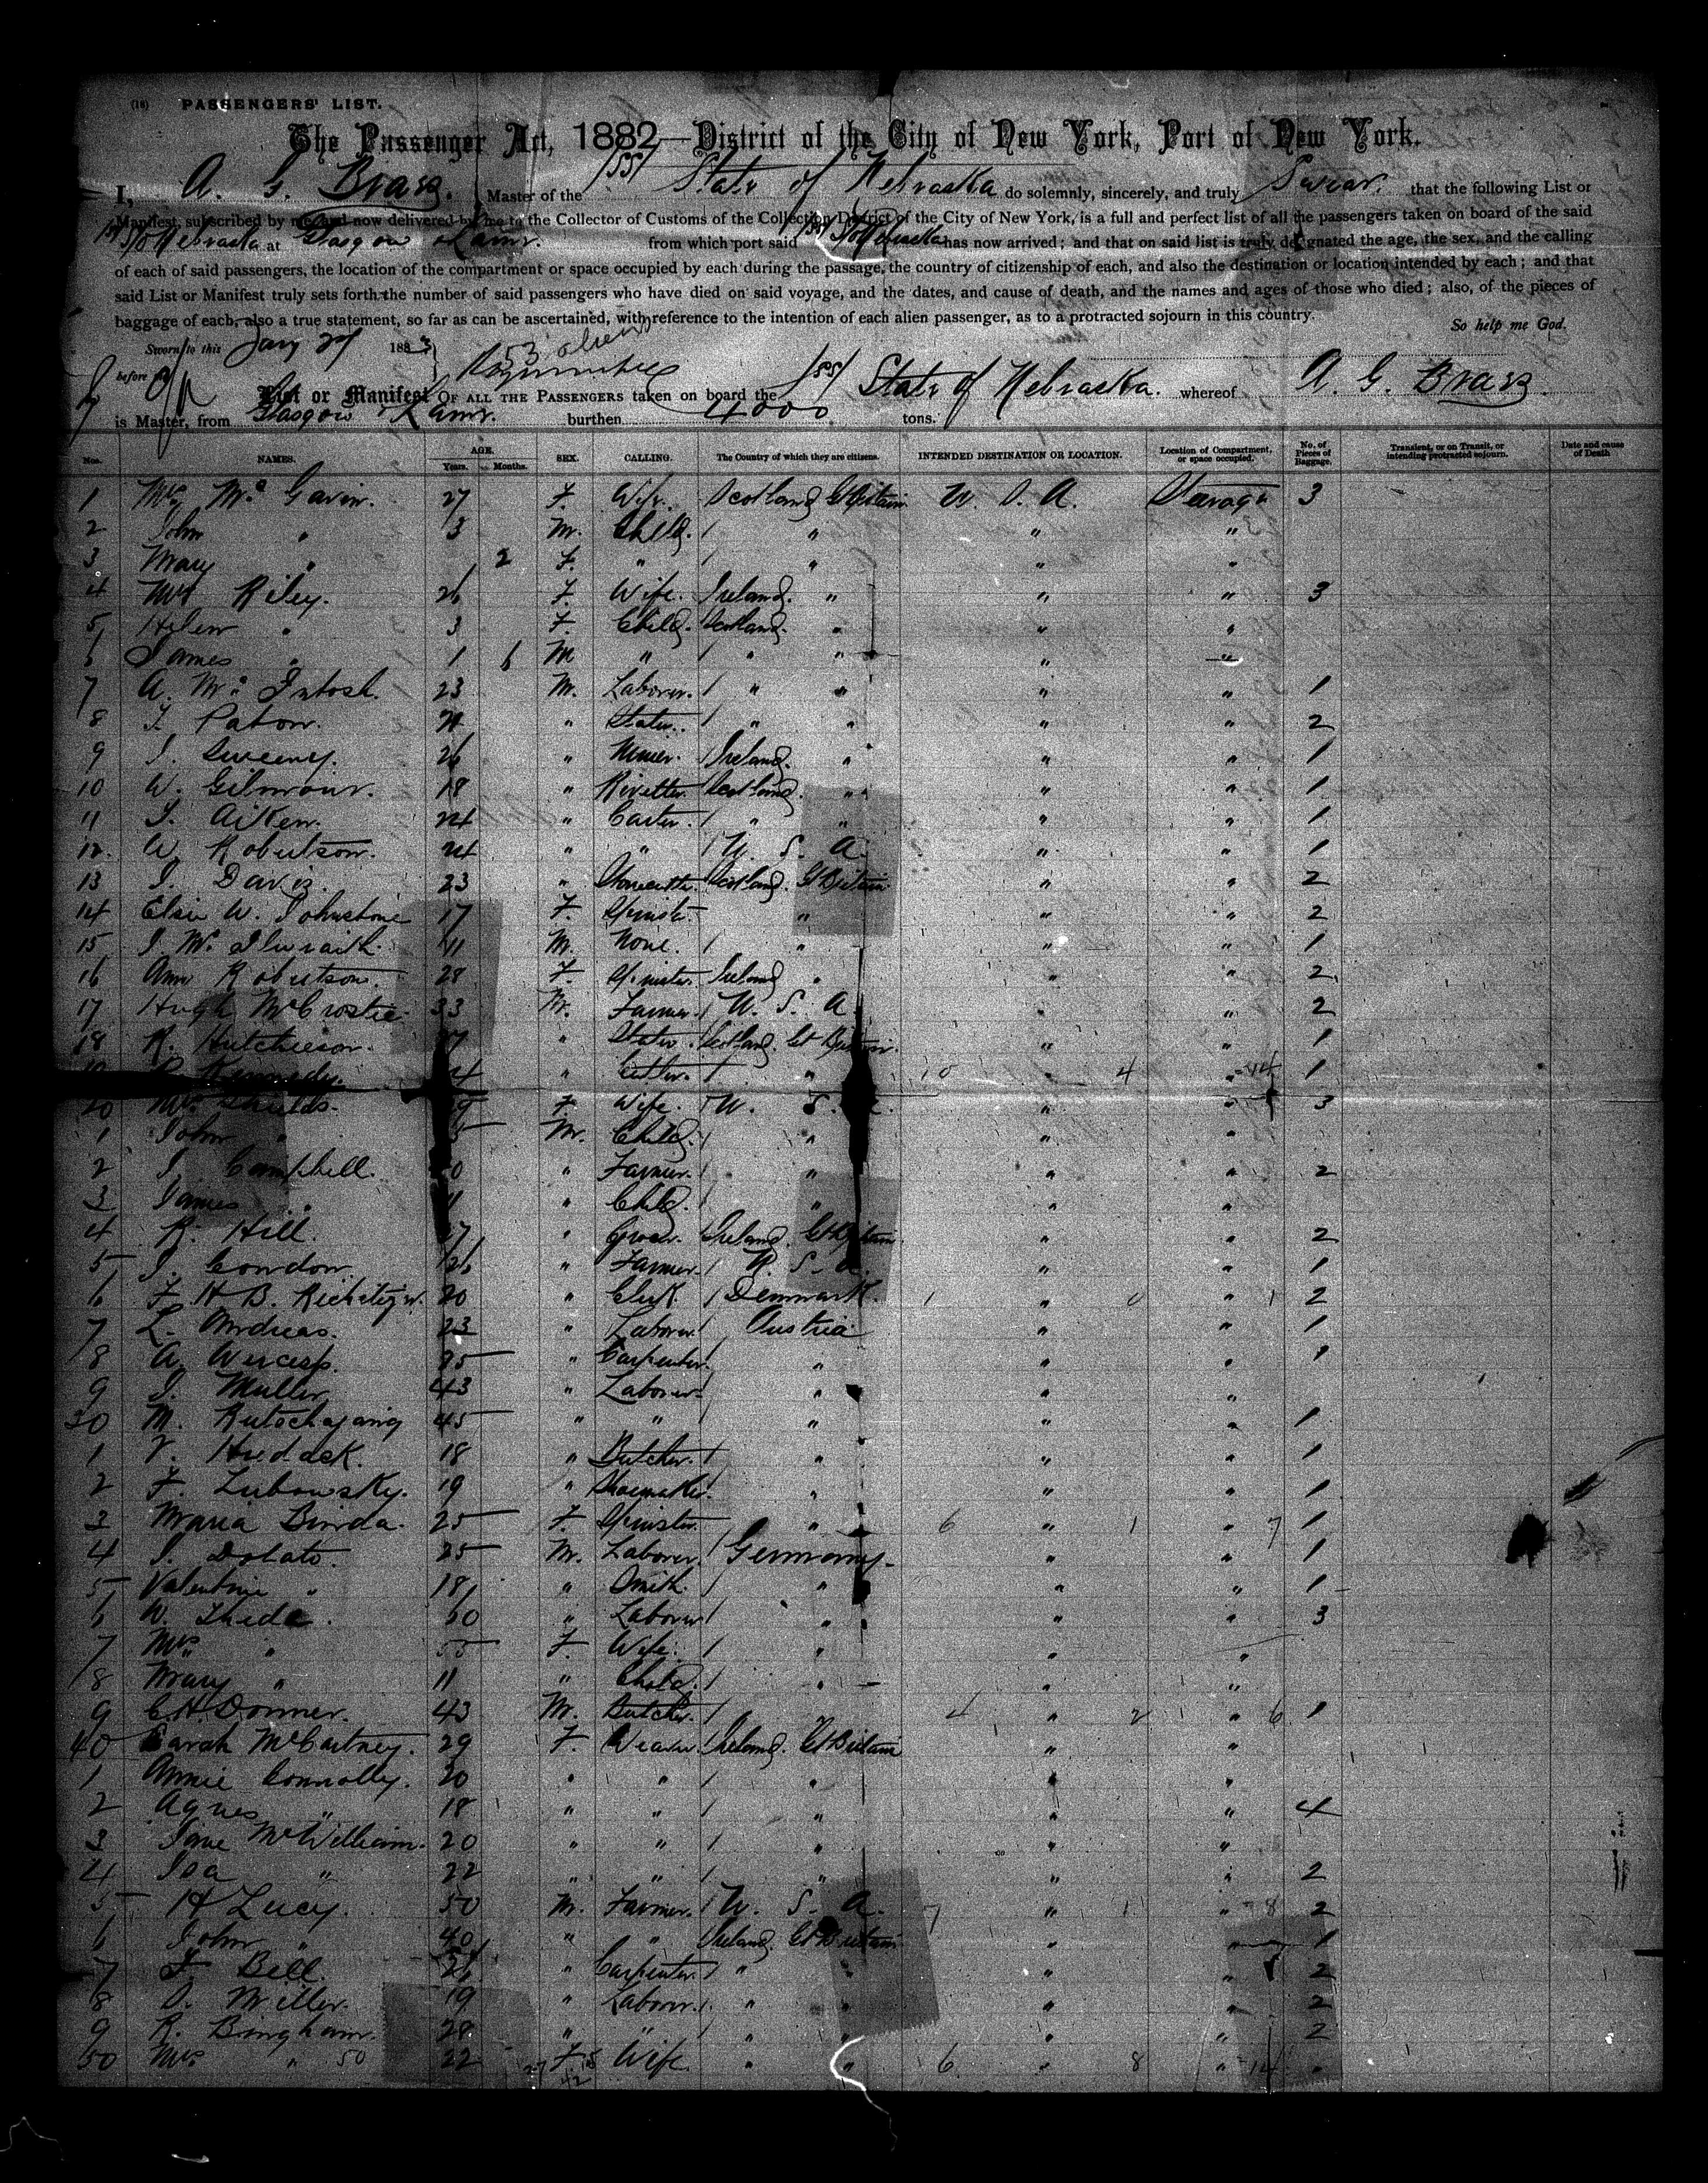 (18) PASSENGERS' LIST.
The Passenger Act, 1882—District of the City of New York, Port of New York.
I, A. G. Braes. Master of the /SS/ State of Nebraska do solemnly, sincerely, and truly Swear. that the following List or
Manifest, subscribed by me and now delivered by me to the Collector of Customs of the Collection District of the City of New York, is a full and perfect list of all the passengers taken on board of the said
Nebraska at Glasgow & Larne. from which port said Nebraska has now arrived; and that on said list is truly designated the age, the sex, and the calling
of each of said passengers, the location of the compartment or space occupied by each during the passage, the country of citizenship of each, and also the destination or location intended by each; and that
said List or Manifest truly sets forth the number of said passengers who have died on said voyage, and the dates, and cause of death, and the names and ages of those who died; also, of the pieces of
baggage of each, also a true statement, so far as can be ascertained, with reference to the intention of each alien passenger, as to a protracted sojourn in this country. So help me God.
Sworn to this Jany 1883 53 aliens
before me
List or Manifest OF ALL THE PASSENGERS taken on board the /SS/ State of Nebraska. whereof A. G. Braes
is Master, from Glasgow & Larne. burthen 4000 tons.
Nos. NAMES. AGE. Years. Months. SEX. CALLING. The Country of which they are citizens. INTENDED DESTINATION OR LOCATION. Location of Compartment, or space occupied. No. of Pieces of Baggage. Transient, or on Transit, or intending protracted sojourn. Date and cause of Death
1 Mrs Mc Gavin. 27 F. Wife. Scotland Gt Britain U. S. A. Steerage 3
2 John " 3 M. Child. " " "
3 Mary " 2 F. " " " "
4 Mrs Riley. 26 F. Wife. Ireland. " " " 3
5 Helen " 3 F. Child. Scotland. " " "
6 James " 1 6 M " " " " "
7 A. Mc Intosh. 23 M. Laborer. " " " " 1
8 Paton. " Slater. " " " " 2
9 J. Sweeny. 26 " Miner. Ireland. " " " 1
10 W. Gilmour. 18 " Rivetter Scotland. " " " 1
11 J. Aiken. 24 " Carter. " " " " 1
12 W. Robertson. 24 " " U. S. A. " " 1
13 J. Davis. 23 " Scotland. Gt Britain " " 2
14 Elsie W. Johnstone 17 F. Spinster. " " " 2
15 J. Mc Ilwraith. 11 M. None. " " " 1
16 Ann Robertson. 28 F. Spinster Ireland " " " 2
17 Hugh McCrostie 33 M. Farmer. U. S. A. " " 2
18 R. Hutchieson. " Slater. Scotland. Gt Britain. " " 1
19 Kennedy. " " 10 4 14 1
20 Mrs Shields. F. Wife. U. S. " " 3
1 John " M. Child. " " "
2 J. Campbell. " Farmer. " " " 2
3 James " " Child. " " "
4 R. Hill. " Grocer. Ireland. Gt Britain " " 2
5 J. Condon 26 " Farmer. U. S. A. " " 1
6 F. H B. 20 " Clerk. Denmark. 1 " 0 " 1 2
7 L. Andreas. 23 " Laborer Austria " " 1
8 A. " Carpenter. " " " 1
9 J. Muller 43 " Laborer. " " "
30 M. 45 " " " " " 1
1 V. Hudack. 18 " Butcher. " " " 1
2 F. Lubowsky. 19 " Shoemaker. " " " 1
3 Maria Binda. 25 F. Spinster. " 6 " 1 " 7 1
4 J. Dolato. 25 M. Laborer Germany. " " 1
5 Valentine " 18 " Smith. " " " 1
6 W. " Laborer " " " 3
7 Mrs " F. Wife. " " "
8 Mary " 11 " Child. " " "
9 C.H. Donner. 43 M. Butcher. 4 " 2 " 6 1
40 Sarah McCartney. 29 F. Weaver. Ireland. Gt Britain " "
1 Annie Connolly. 20 " " " " "
2 Agnes " 18 " " " " " 4
3 Jane McWilliam. 20 " " " " "
4 Isa " 22 " " " " " 2
5 H Lucy. 50 M. Farmer. U. S. A. 7 " 1 " 8 2
6 John " 40 " " Ireland. Gt Britain " " 1
7 Bell. " Carpenter. " " " " 2
8 Miller. 19 " Laborer. " " " " 2
9 R. Bingham. 28 " " " " " " 2
50 Mrs " 50 22 F. Wife. " " 6 " 8 " 14 "